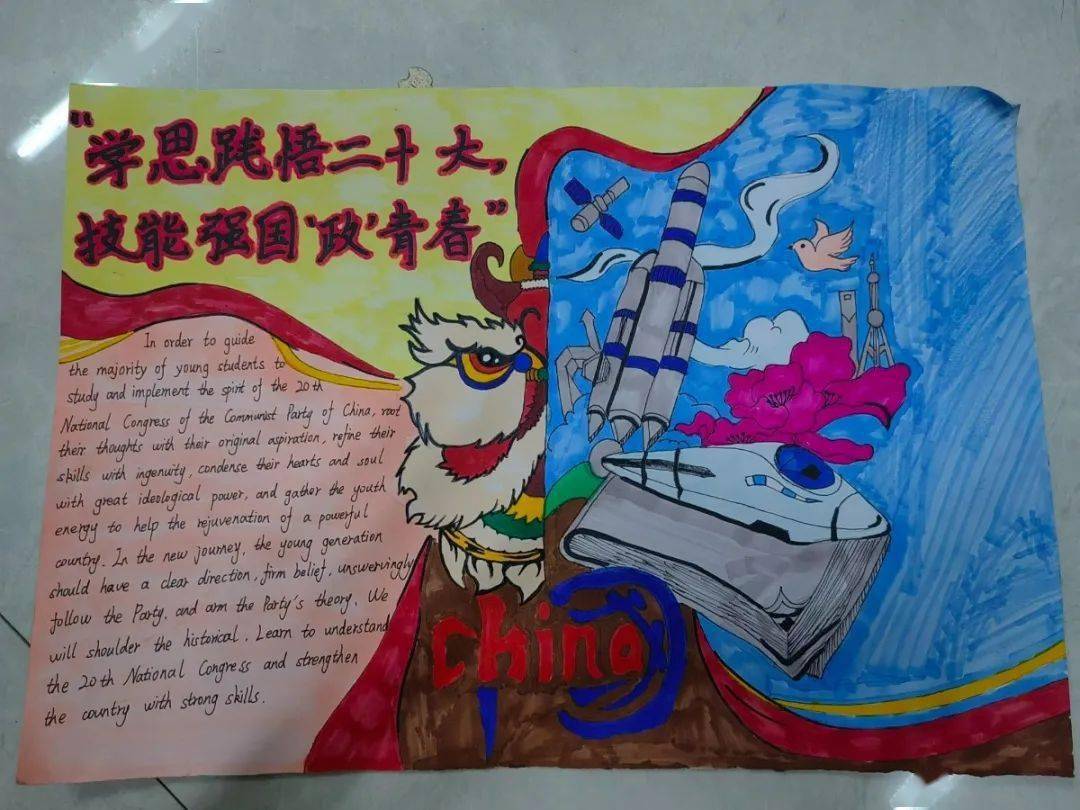 "学思践悟二十大,
技能强国'政'青春"
In order to guide
the majority of young students to
study and implement the spirit of the 20th
National Congress of the Communist Party of China, root
their thoughts with their original aspiration, refine their
skills with ingenuity, condense their hearts and soul
with great ideological power, and gather the youth
energy to help the rejuvenation of a powerful
country. In the new journey, the young generation
should have a clear direction, firm belief, unswervingly
follow the Party, and arm the Party's theory. We
will shoulder the historical. Learn to understand
the 20th National Congress and strengthen
the country with strong skills.
china